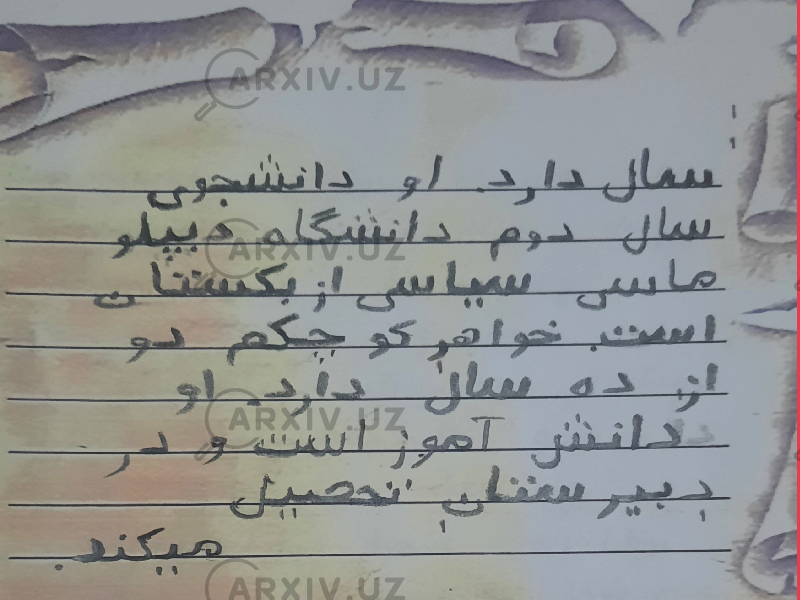 ARXIV.UZ
سال دارد. او دانشجوی
سال دوم دانشگاه دیپلو
ماسی سیاسی ازبکستان
است. خواهر کوچکم دو
ازده سال دارد. او
دانش آموز است و در
دبیرستان تحصیل
میکند.
ARXIV.UZ
ARXIV.UZ
ARXIV.UZ